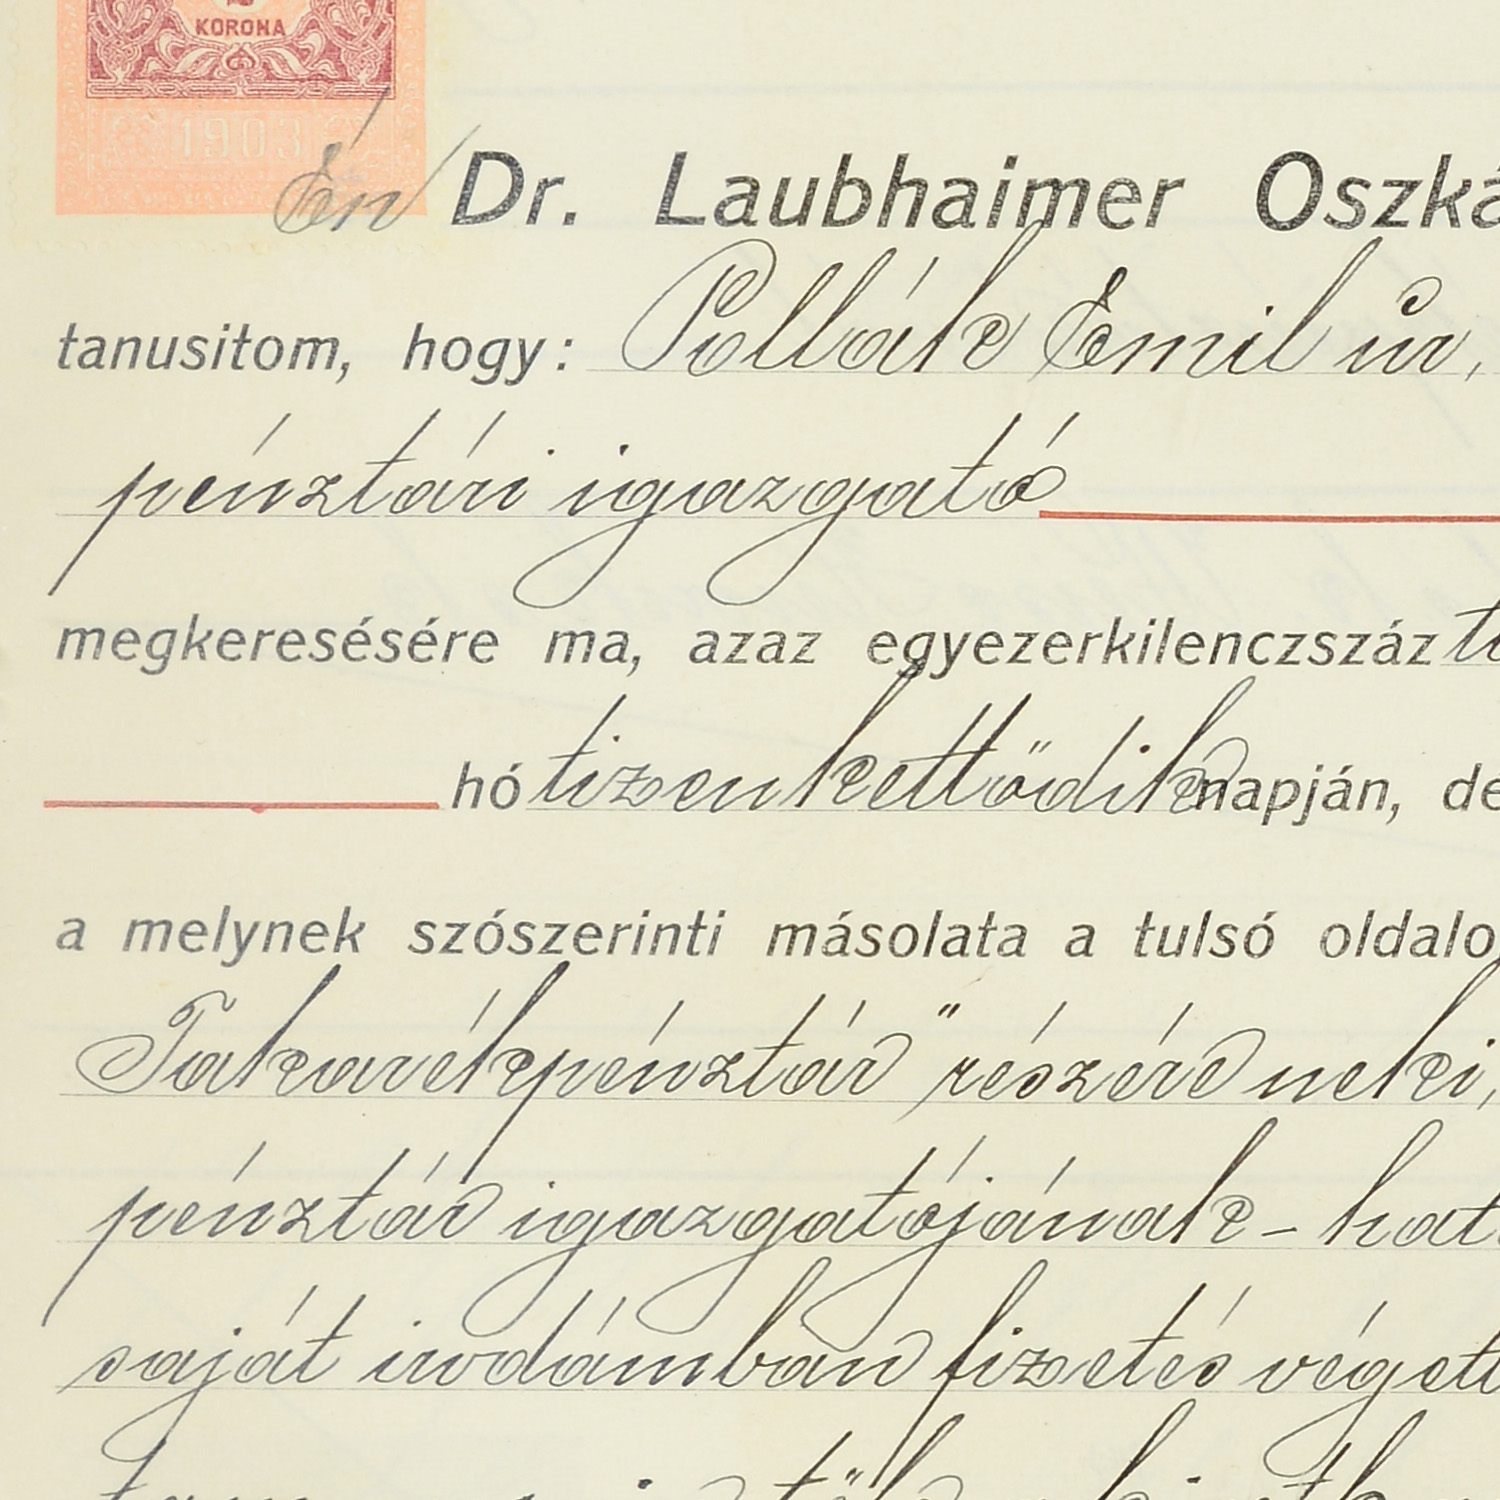 KORONA
1903
Én Dr. Laubhaimer Oszká
tanusitom, hogy: Pollák Emil úr,
pénztári igazgató
megkeresésére ma, azaz egyezerkilenczszáz ti
hó tizenkettődik napján, de
a melynek szószerinti másolata a tulsó oldalo
Takarékpénztár" részére neki,
pénztár igazgatójának - hat
saját irodámban fizetés végett